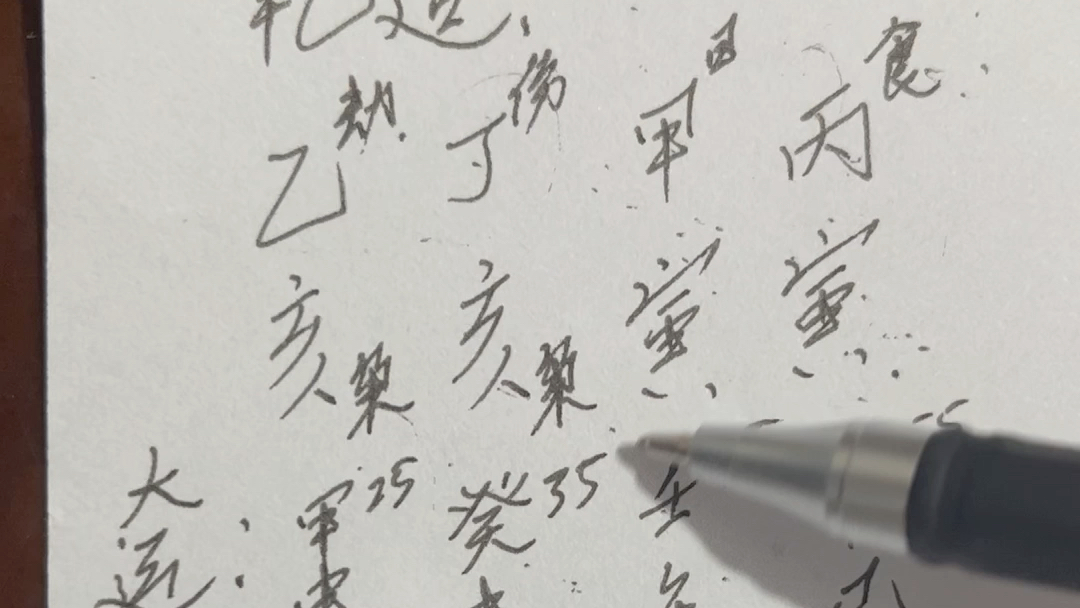 乾造:
劫 伤 日 食
乙 丁 甲 丙
亥 亥 寅 寅
枭 枭
大运: 甲25 癸35 壬